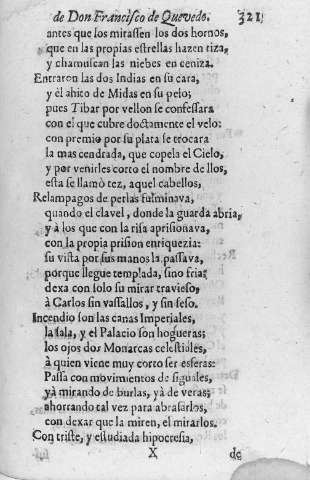 de Don Francisco de Quevedo. 321
antes que los mirassen los dos hornos,
que en las propias estrellas hazen tiza,
y chamuscan las niebes en ceniza.
Entraron las dos Indias en su cara,
y él ahito de Midas en su pelo;
pues Tibar por vellon se confessara
con el que cubre doctamente el velo:
con premio por su plata se trocara
la mas cendrada, que copela el Cielo,
y por venirles corto el nombre de llos,
esta se llamò tez, aquel cabellos,
Relampagos de perlas fulminava,
quando el clavel, donde la guarda abria,
y à los que con la risa aprisionava,
con la propia prision enriquezia:
su vista por sus manos la passava,
porque llegue templada, sino fria;
dexa con solo su mirar travieso,
à Carlos sin vassallos, y sin seso.
Incendio son las canas Imperiales,
la sala, y el Palacio son hogueras;
los ojos dos Monarcas celestiales,
à quien viene muy corto ser esferas:
Passa con movimientos desiguales,
yà mirando de burlas, yà de veras;
ahorrando tal vez para abrasarlos,
con dexar que la miren, el mirarlos.
Con triste, y estudiada hipocresia,
X de